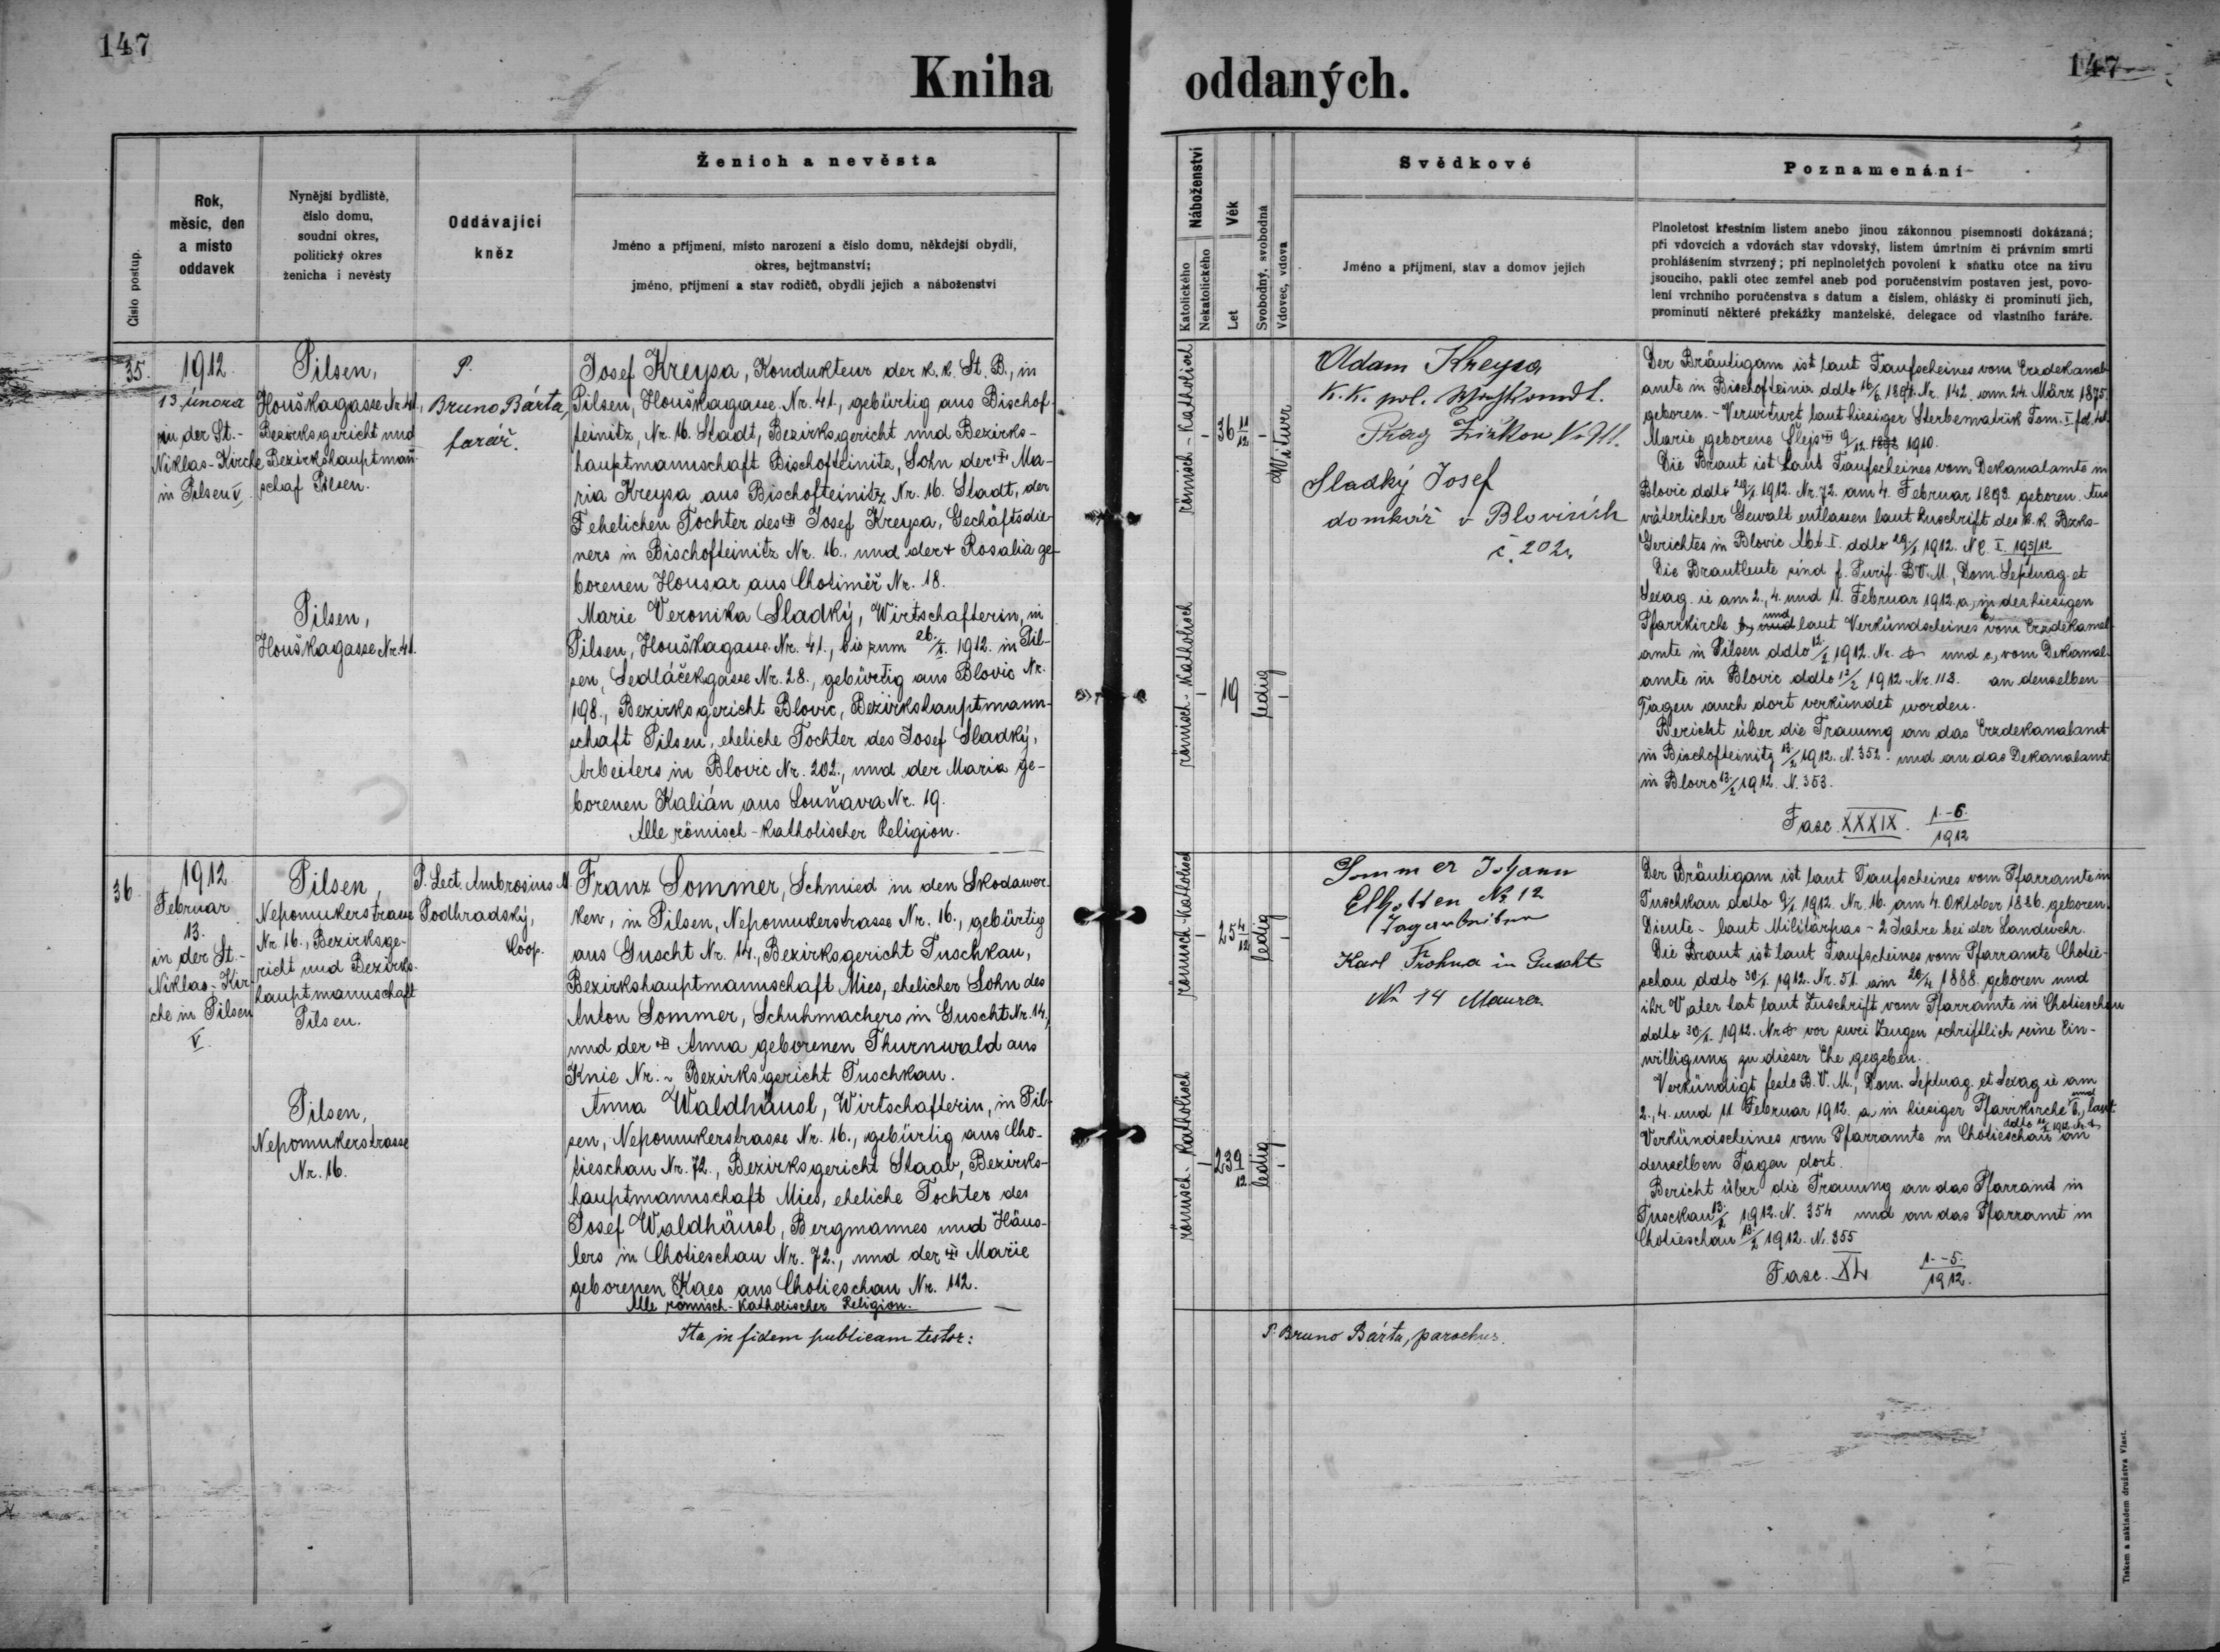 147
Kniha oddaných.
147
Číslo postup.
Rok,
měsíc, den
a místo
oddavek
Nynější bydliště,
číslo domu,
soudní okres,
politický okres
ženicha i nevěsty
Oddávající
kněz
Ženich a nevěsta
Jméno a příjmení, místo narození a číslo domu, někdejší obydlí,
okres, hejtmanství;
jméno, příjmení a stav rodičů, obydlí jejich a náboženství
Náboženství
Katolického
Nekatolického
Věk
Let
Svobodný, svobodná
Vdovec, vdova
Svědkové
Jméno a příjmení, stav a domov jejich
Poznamenání
Plnoletost křestním listem anebo jinou zákonnou písemností dokázaná;
při vdovcích a vdovách stav vdovský, listem úmrtním či právním smrti
prohlášením stvrzený; při neplnoletých povolení k sňatku otce na živu
jsoucího, pakli otec zemřel aneb pod poručenstvím postaven jest, povo-
lení vrchního poručenstva s datum a číslem, ohlášky či prominutí jich,
prominutí některé překážky manželské, delegace od vlastního faráře.
35.
1912.
13 února
in der St.-
Niklas-Kirche
in Pilsen V.
Pilsen,
Houškagasse Nr. 41,
Bezirksgericht und
Bezirkshauptman̄-
schaf Pilsen.
Pilsen,
Houškagasse Nr. 41.
P.
Bruno Bárta,
farář.
Josef Kreysa, Kondukteur der k. k. St. B., in
Pilsen, Houškagasse Nr. 41., gebürtig aus Bischof-
teinitz, Nr. 16. Stadt, Bezirksgericht und Bezirks-
hauptmannschaft Bischofteinitz, Sohn der Ma-
ria Kreysa aus Bischofteinitz Nr. 16. Stadt, der
† ehelichen Tochter des Josef Kreysa, Gechäftsdie-
ners in Bischofteinitz Nr. 16. und der † Rosalia ge-
borenen Housar aus Chotiměř Nr. 18.
Marie Veronika Sladký, Wirtschafterin, in
Pilsen, Houškagasse Nr. 41., bis zum 26./I. 1912. in Pil-
sen, Sedláčekgasse Nr. 28., gebürtig aus Blovic Nr.
198., Bezirksgericht Blovic, Bezirkshauptmann-
schaft Pilsen, eheliche Tochter des Josef Sladký,
Arbeiters in Blovic Nr. 202., und der Maria ge-
borenen Kalián aus Louňava Nr. 19.
Alle römisch-katholischer Religion.
römisch-katholisch
36 11/12
Witwer
römisch-katholisch
19
ledig
Adam Kreysa
K.K. pol.
Prag Žižkov
Sladký Josef
domkář v Blovicích
č. 202.
Der Bräutigam ist laut Taufscheines vom Erzdekanal-
amte in Bischofteinitz ddto Nr. 142. am 24. März 1875.
geboren. - Verwitwet laut hiesiger Sterbematrik Tom. I. fol.
Marie geborene 1910.
Die Braut ist laut Taufscheines vom Dekanalamte in
Blovic ddto 29/I. 1912. Nr. 72. am 4. Februar 1893. geboren. Aus
väterlicher Gewalt entlassen laut Zuschrift des k. k. Bezks-
Gerichtes in Blovic Abt. I. ddto 29/I. 1912. I. 195/12
Die Brautleute sind f. Purif. B.V.M., Dom. Septuag. et
Sexag. ie am 2., 4. und 11. Februar 1912. a, in der hiesigen
Pfarrkirche und laut Verkündscheines vom Erzdekanal-
amte in Pilsen ddto 12/2 1912. Nr. und c, vom Dekanal-
amte in Blovic ddto 12/2 1912. Nr. 113. an denselben
Tagen auch dort verkündet worden.
Bericht über die Trauung an das Erzdekanalamt
in Bischofteinitz 13/2 1912. N. 352. und an das Dekanalamt
in Blovic 13/2 1912. N. 353.
Fasc. XXXIX. 1.-6./1912
36.
1912
Februar
13.
in der St.-
Niklas-Kir-
che in Pilsen
V.
Pilsen,
Nepomukerstrasse
Nr. 16., Bezirksge-
richt und Bezirks-
hauptmannschaft
Pilsen.
Pilsen,
Nepomukerstrasse
Nr. 16.
P. Lect. Ambrosius M.
Podhradský,
Coop.
Franz Sommer, Schmied in den Skodawer-
ken, in Pilsen, Nepomukerstrasse Nr. 16., gebürtig
aus Guscht Nr. 14., Bezirksgericht Tuschkau,
Bezirkshauptmannschaft Mies, ehelicher Sohn des
Anton Sommer, Schuhmachers in Guscht Nr. 14.,
und der Anna geborenen Thurnwald aus
Knie Nr. ~ Bezirksgericht Tuschkau.
Anna Waldhäusl, Wirtschafterin, in Pil-
sen, Nepomukerstrasse Nr. 16., gebürtig aus Cho-
tieschau Nr. 72., Bezirksgericht Staab, Bezirks-
hauptmannschaft Mies, eheliche Tochter des
Josef Waldhäusl, Bergmannes und Häus-
lers in Chotieschau Nr. 72., und der Marie
geborenen Kaes aus Chotieschau Nr. 112.
Alle römisch-katholischer Religion.
römisch-katholisch
25 4/12
ledig
römisch-katholisch
23 9/12
ledig
Sommer Johann
Elhotten № 12
Karl Frohna in Guscht
Nr 14 Maurer
Der Bräutigam ist laut Taufscheines vom Pfarramte in
Tuschkau ddto 9/I. 1912. Nr. 16. am 4. Oktober 1886. geboren.
Diente - laut Militärpas - 2 Jahre bei der Landwehr.
Die Braut ist laut Taufscheines vom Pfarramte Chotie-
schau ddto 30/I. 1912. Nr. 51. am 20/4 1888. geboren und
ihr Vater hat laut Zuschrift vom Pfarramte in Chotieschau
ddto 30/I. 1912. Nr. vor zwei Zeugen schriftlich seine Ein-
willigung zu dieser Ehe gegeben.
Verkündigt festo B. V. M., Dom. Septuag. et Sexag. ie am
2., 4. und 11. Februar 1912. a, in hiesiger Pfarrkirche und b, laut
Verkündscheines vom Pfarramte in Chotieschau an
denselben Tagen dort.
Bericht über die Trauung an das Pfarramt in
Tuschkau 13/2 1912. N. 354 und an das Pfarramt in
Chotieschau 13/2 1912. N. 355
Fasc. XL 1.-5./1912.
Ita in fidem publicam testor:
P. Bruno Bárta, parochus.
Tiskem a nákladem družstva Vlast.